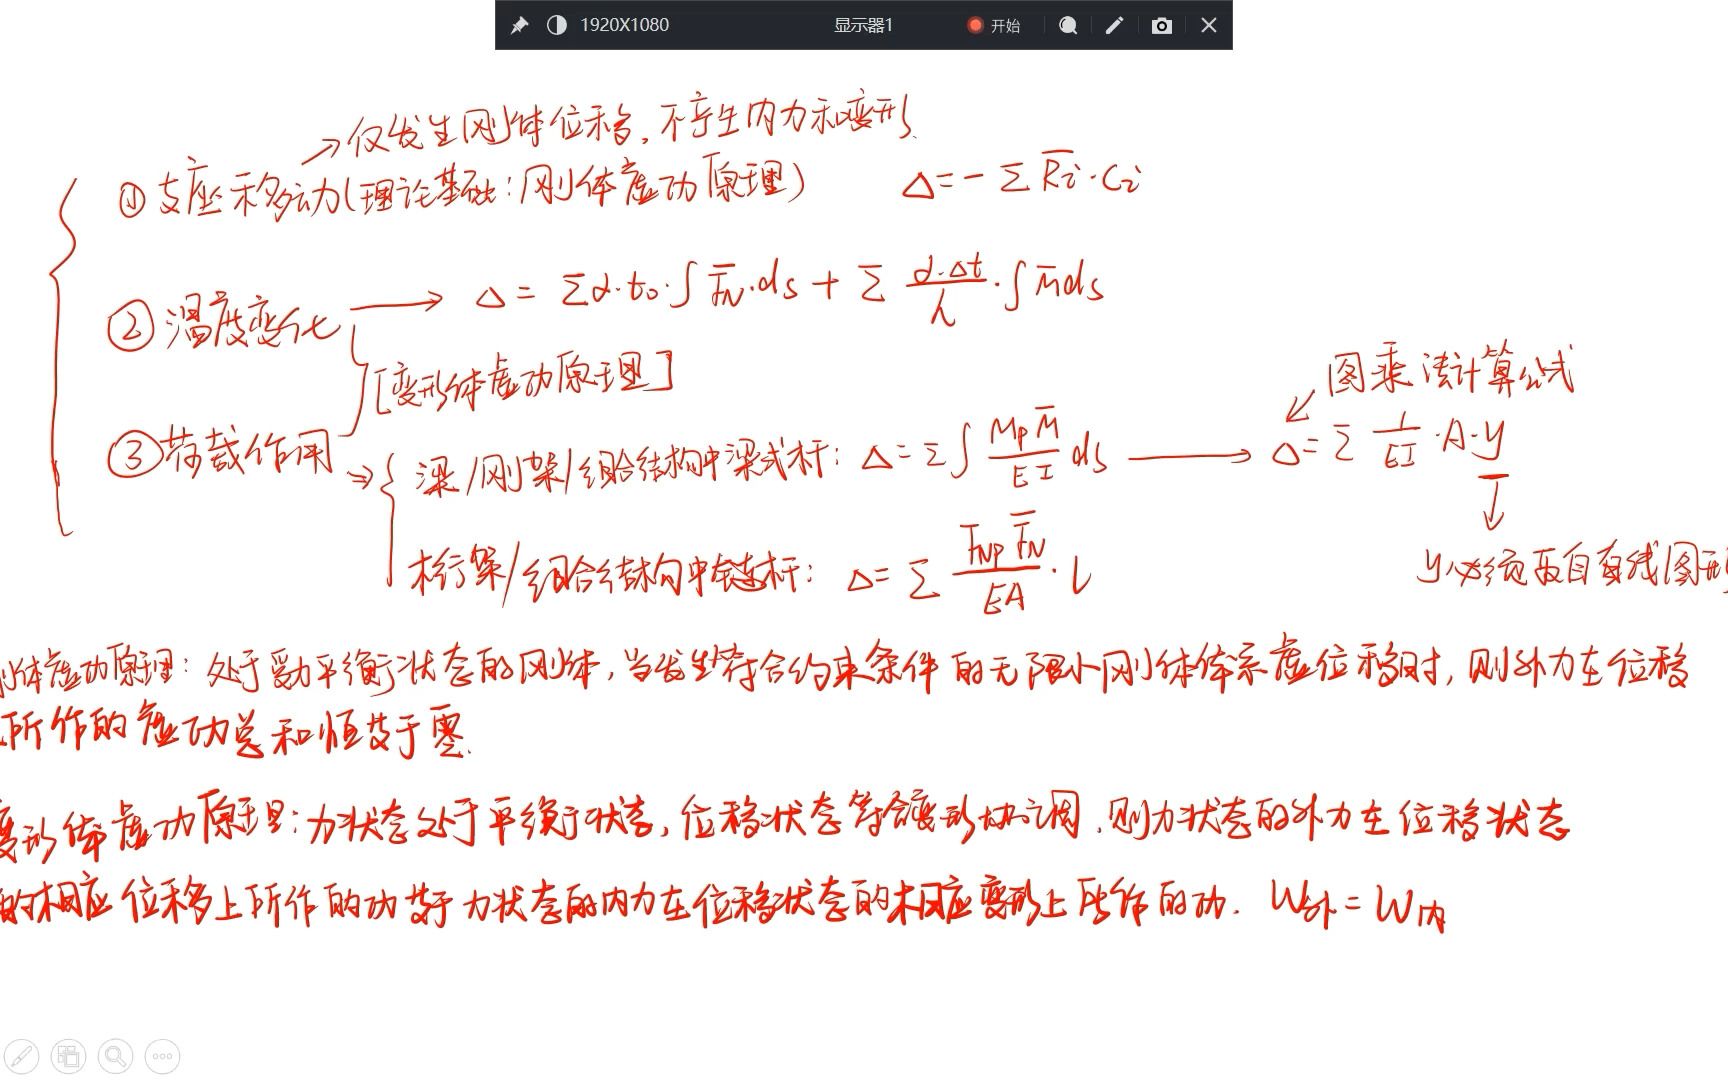 1920X1080 显示器1 开始
仅发生刚体位移,不产生内力和变形.
①支座移动(理论基础:刚体虚功原理) Δ=-Σ R̄i·Ci
②温度变化 → Δ= Σα·t₀·∫F̄N·ds+Σ α·Δt/h·∫M̄ds
[变形体虚功原理]
图乘法计算公式
③荷载作用
梁/刚架/组合结构中梁式杆: Δ=Σ∫ MpM̄/EI ds → Δ=Σ 1/EI·A·y
桁架/组合结构中链杆: Δ=Σ FNpF̄N/EA·l
y必须取自直线图形
体虚功原理:处于受力平衡状态的刚体,当发生符合约束条件的无限小刚体体系虚位移时,则外力在位移
所作的虚功总和恒等于零.
变形体虚功原理:力状态处于平衡状态,位移状态符合变形协调,则力状态的外力在位移状态
的相应位移上所作的功等于力状态的内力在位移状态的相应变形上所作的功. W外=W内